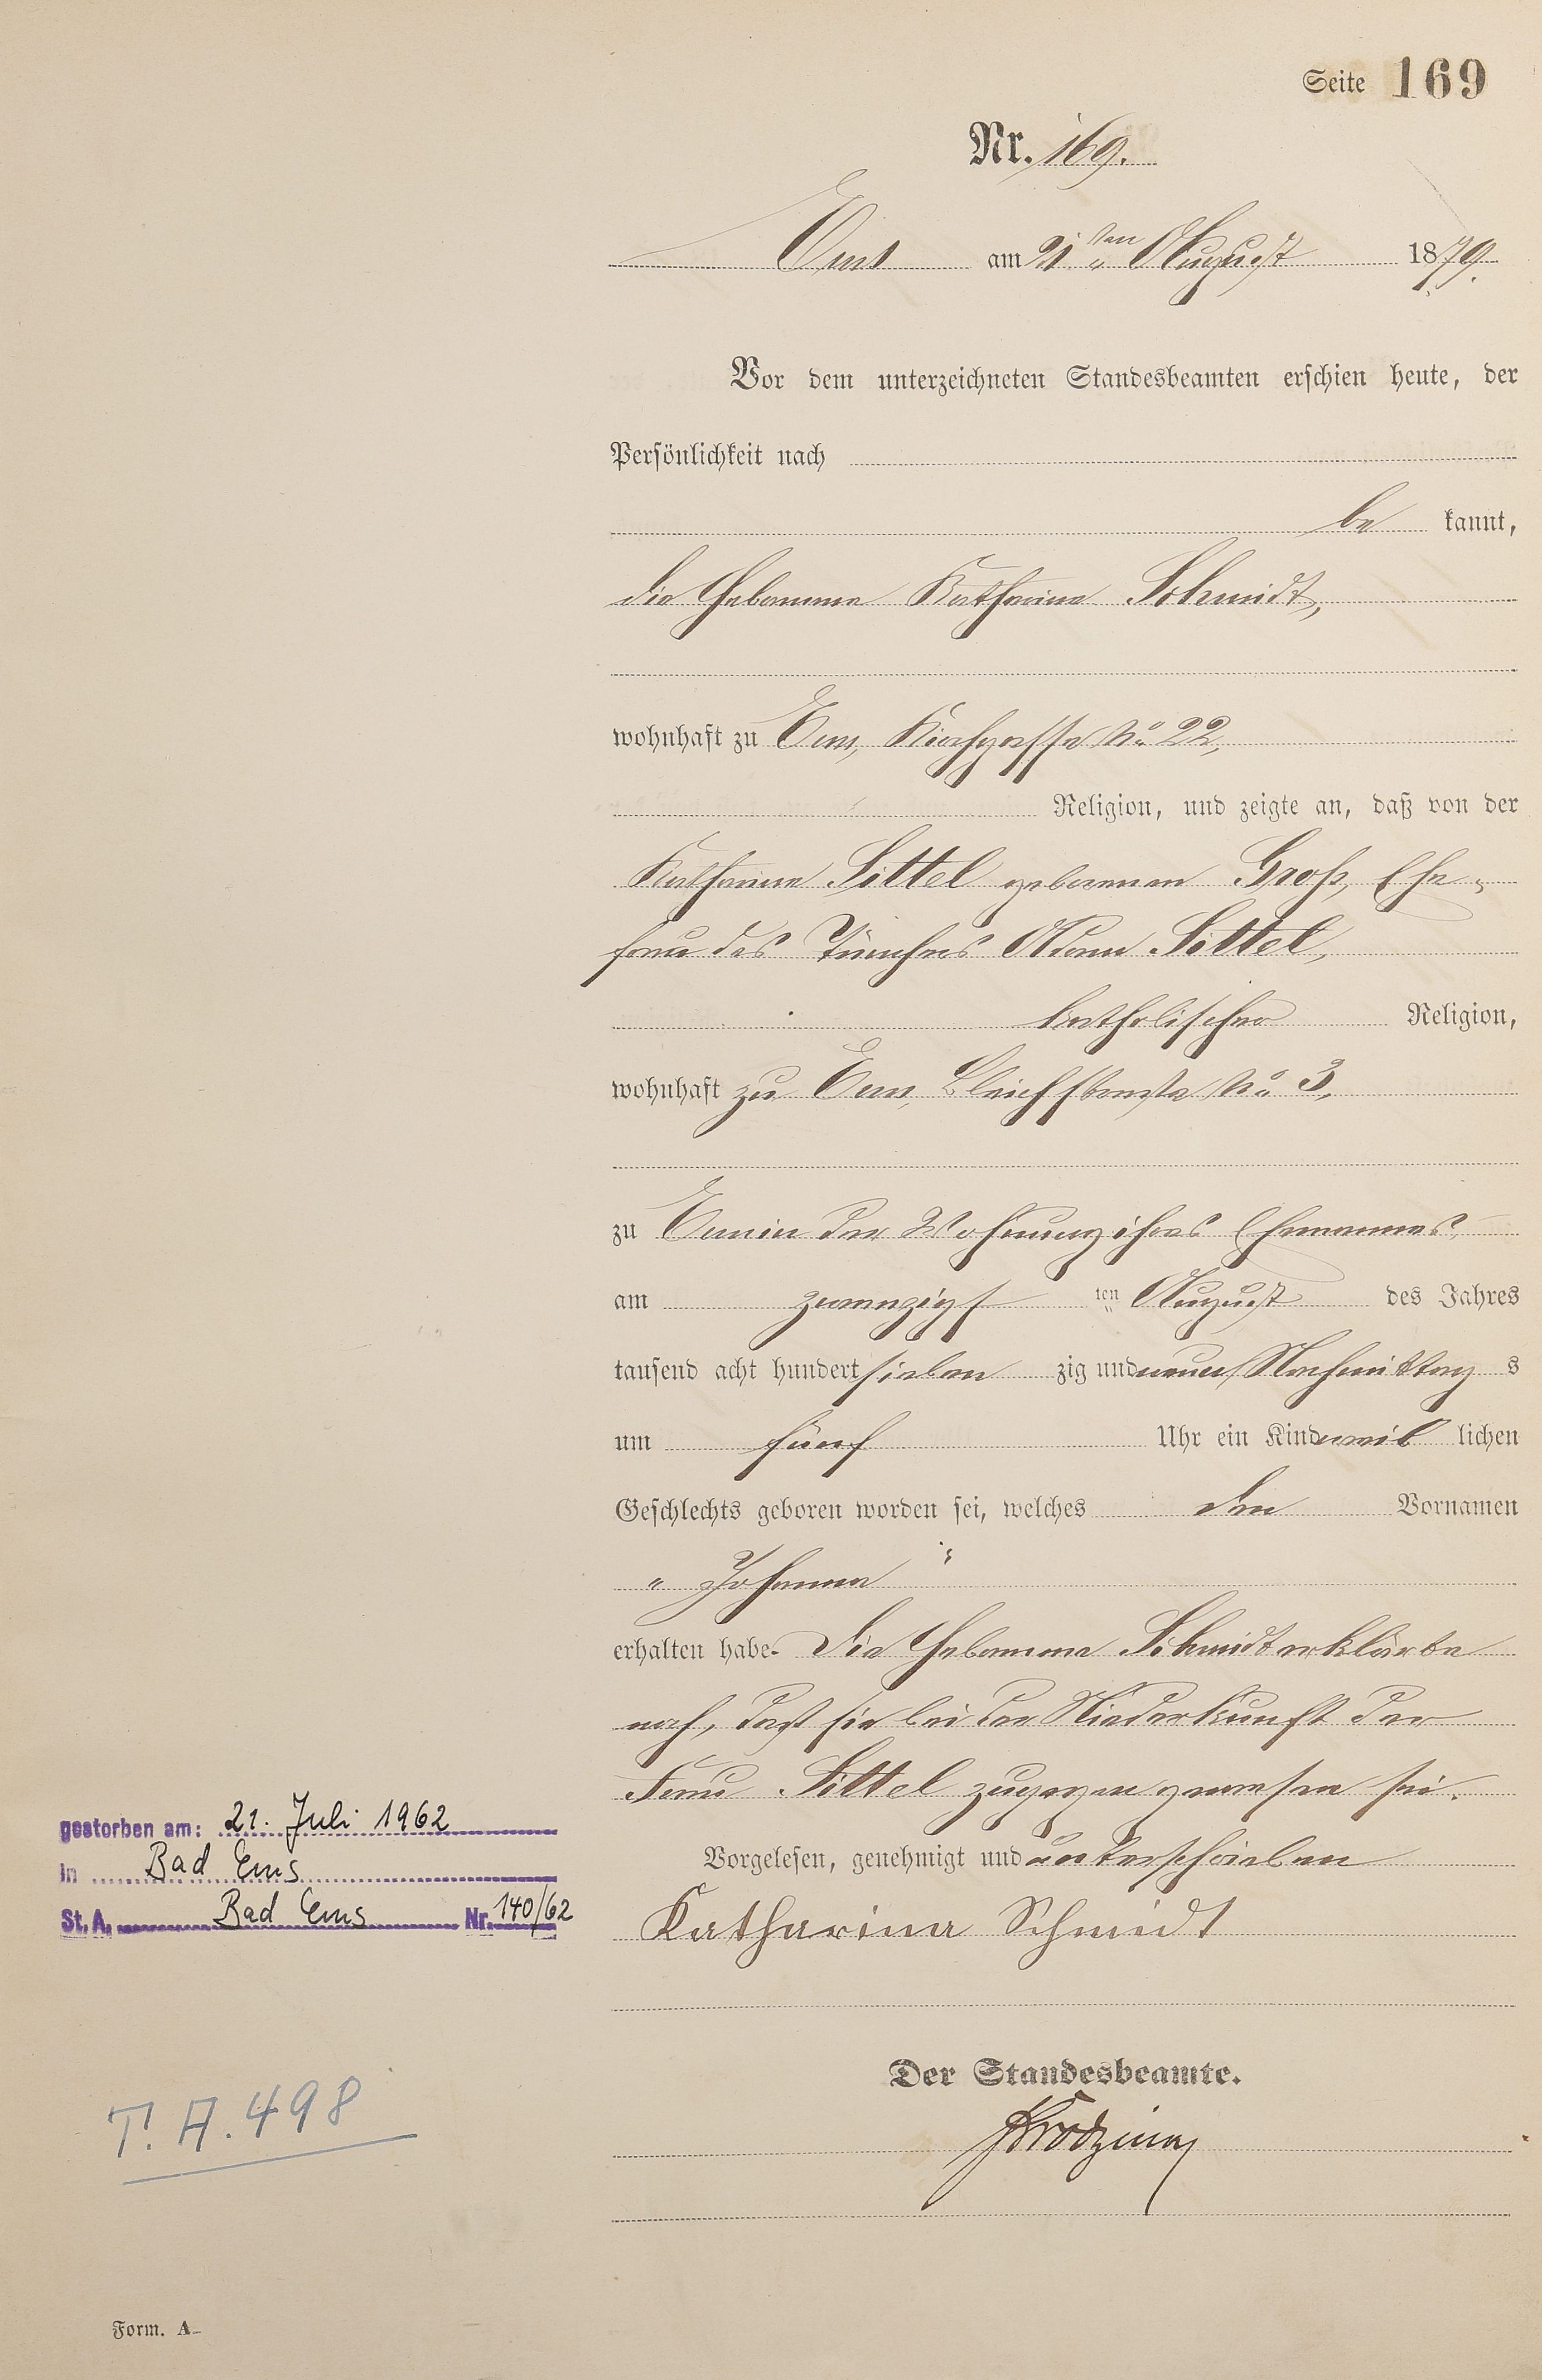 Seite 169
Nr. 169.
Ems am 21ten August 1879.
Vor dem unterzeichneten Standesbeamten erschien heute, der
Persönlichkeit nach
be kannt,
die Hebamme Katharina Schmidt,
wohnhaft zu Ems, Kirchgasse No 22,
Religion, und zeigte an, daß von der
Katharina Sittel geborenen Groß, Ehe-
frau des Tünchers Adam Sittel,
katholischer Religion,
wohnhaft zu Ems, Bleichstraße No 3,
zu Ems in der Wohnung ihres Ehemannes,
am zwanzigs ten August des Jahres
tausend acht hundert sieben zig und neun Nachmittag s
um fünf Uhr ein Kind weib lichen
Geschlechts geboren worden sei, welches den Vornamen
„Johanna“
erhalten habe. Die Hebamme Schmidt erklärte
noch, daß sie bei der Niederkunft der
Frau Sittel zugegen gewesen sei.
Vorgelesen, genehmigt und unterschrieben
Katharina Schmidt
Der Standesbeamte.
gestorben am: 21. Juli 1962
in Bad Ems
St. A. Bad Ems Nr. 140/62
T. A. 498
Form. A.